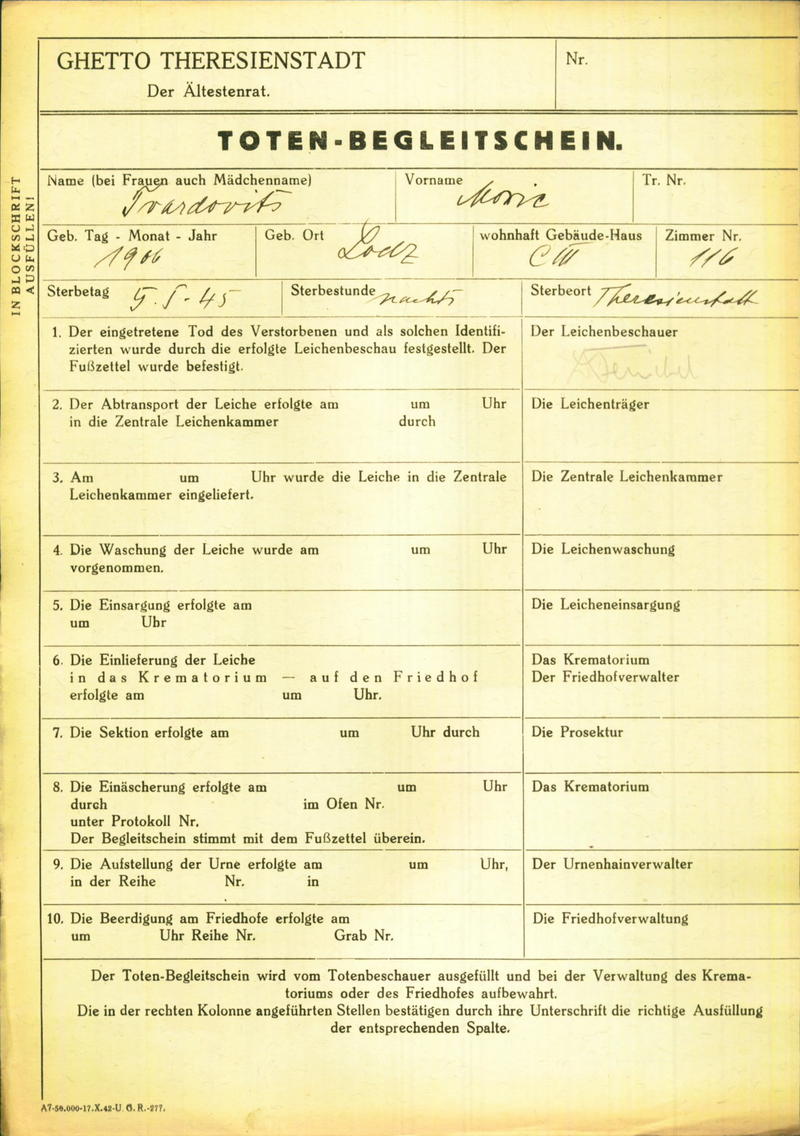 GHETTO THERESIENSTADT
Der Ältestenrat.
Nr.
TOTEN-BEGLEITSCHEIN.
IN BLOCKSCHRIFT
AUSFÜLLEN!
Name (bei Frauen auch Mädchenname)
Tvardovits
Vorname
Moric
Tr. Nr.
Geb. Tag - Monat - Jahr
1906
Geb. Ort
Lodz
wohnhaft Gebäude-Haus
C III
Zimmer Nr.
116
Sterbetag 5.I-45
Sterbestunde nachts
Sterbeort Theresienstatt
1. Der eingetretene Tod des Verstorbenen und als solchen Identifi-
zierten wurde durch die erfolgte Leichenbeschau festgestellt. Der
Fußzettel wurde befestigt.
Der Leichenbeschauer
2. Der Abtransport der Leiche erfolgte am um Uhr
in die Zentrale Leichenkammer durch
Die Leichenträger
3. Am um Uhr wurde die Leiche in die Zentrale
Leichenkammer eingeliefert.
Die Zentrale Leichenkammer
4. Die Waschung der Leiche wurde am um Uhr
vorgenommen.
Die Leichenwaschung
5. Die Einsargung erfolgte am
um Uhr
Die Leicheneinsargung
6. Die Einlieferung der Leiche
in das Krematorium — auf den Friedhof
erfolgte am um Uhr.
Das Krematorium
Der Friedhofverwalter
7. Die Sektion erfolgte am um Uhr durch
Die Prosektur
8. Die Einäscherung erfolgte am um Uhr
durch im Ofen Nr.
unter Protokoll Nr.
Der Begleitschein stimmt mit dem Fußzettel überein.
Das Krematorium
9. Die Aufstellung der Urne erfolgte am um Uhr,
in der Reihe Nr. in
Der Urnenhainverwalter
10. Die Beerdigung am Friedhofe erfolgte am
um Uhr Reihe Nr. Grab Nr.
Die Friedhofverwaltung
Der Toten-Begleitschein wird vom Totenbeschauer ausgefüllt und bei der Verwaltung des Krema-
toriums oder des Friedhofes aufbewahrt.
Die in der rechten Kolonne angeführten Stellen bestätigen durch ihre Unterschrift die richtige Ausfüllung
der entsprechenden Spalte.
A7-50.000-17.X.42-U. G. R.-277.